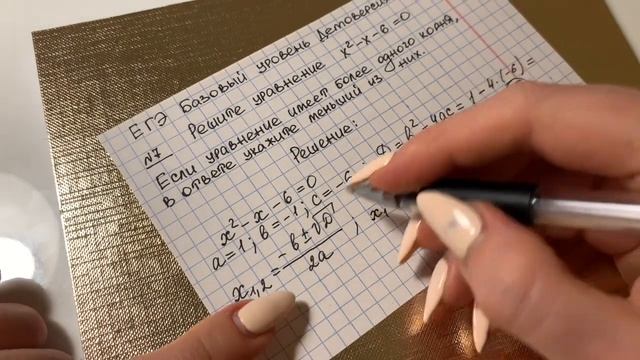 ЕГЭ Базовый уровень Демоверсия
№7 Решите уравнение x²-x-6=0
Если уравнение имеет более одного корня,
в ответе укажите меньший из них.
Решение:
x²-x-6=0
a=1; b=-1; c=-6; D=b²-4ac=1-4·(-6)=
x₁,₂ = (-b±√D)/2a , x₁